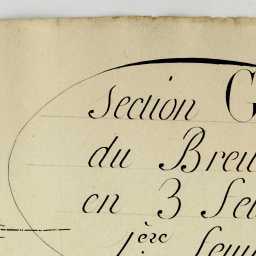 Section G
du Breu
en 3 Feu
1ère Feuil